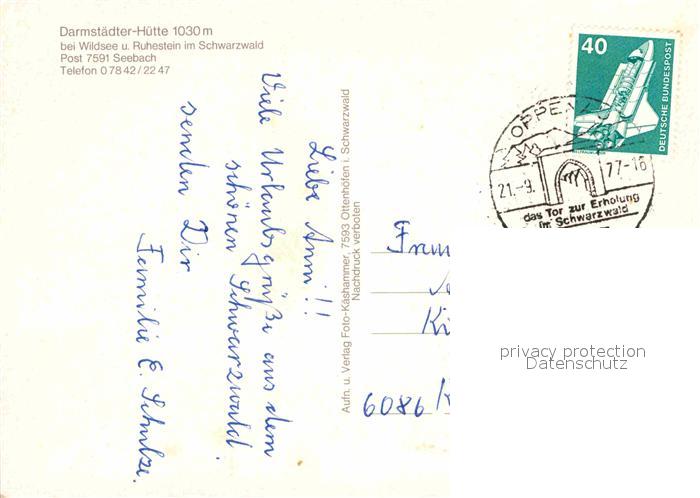 Darmstädter-Hütte 1030 m
bei Wildsee u. Ruhestein im Schwarzwald
Post 7591 Seebach
Telefon 0 78 42 / 22 47
Liebe Anni!!
Viele Urlaubsgrüße aus dem
schönen Schwarzwald.
senden Dir
Familie E. Schulze.
Aufn. u. Verlag Foto-Kashammer, 7593 Ottenhöfen i. Schwarzwald
Nachdruck verboten
40
DEUTSCHE BUNDESPOST
OPPENAU
21.-9. 77-16
das Tor zur Erholung
im Schwarzwald
6086
privacy protection
Datenschutz